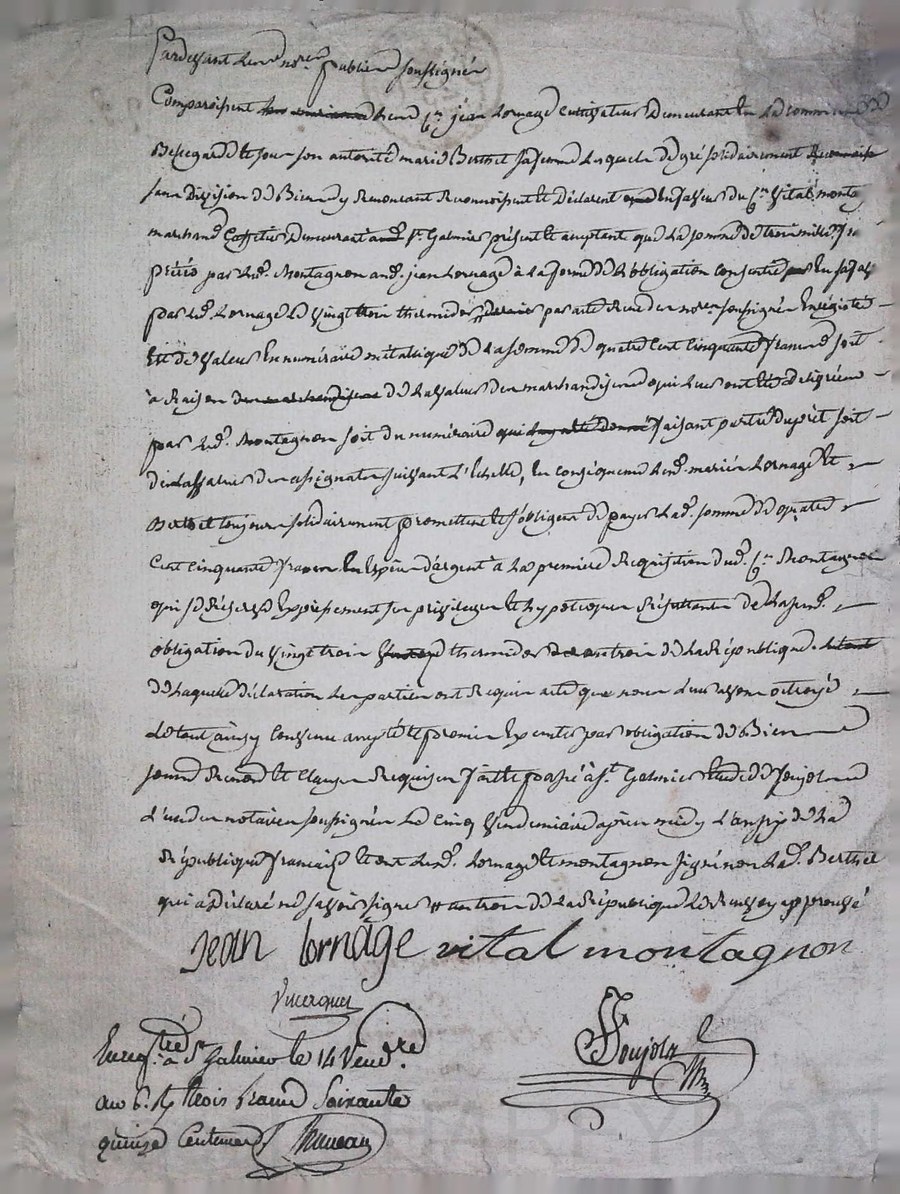 Pardevant Les nores publics soussignés
Comparoissent Les cn jean Lornage Cultivateur Demeurant en La commune de
Bellegarde et sous son autorité marie Berthet sa femme Lesquels de gré solidairement
sans Division de Biens y Renonçant Reconnoissent et Déclarent en faveur du cn Vital montagnon
marchand Demeurant a St Galmier présent et acceptant que La somme de trois mille
pretée par Led. Montagnon aud. jean Lornage à La forme de L'obligation Consentie en sa faveur
par Led. Lornage Le Vingt trois thermidor par acte Reçu des nores soussignés Enregistré
Est de Valeur En numéraire métallique de La somme de quatre Cent Cinquante francs soit
à Raison de La Valeur des marchandises qui Lui ont été Delivrées
par Led. Montagnon soit du numéraire faisant partie du prêt soit
de La Valeur des assignats suivant L'Echelle, En conséquence Lesd. mariés Lornage et
Berthet toujours solidairement promettent et s'obligent de payer Lad. somme de quatre
Cent Cinquante francs En Espèces d'argent à La première Requisition dud. cn Montagnon
qui se Réserve Expressément ses privileges et hypoteques Résultants de La susd.
obligation du Vingt trois thermidor an trois de La République
de Laquelle déclaration Les parties ont Requis acte que nous Leur avons octroyé
Le tout ainsy Convenu accepté et promis Executer par obligation de Biens
soumis Renon. et Clauses Requises fait et passé à St Galmier Etude de Poujol
L'un des notaires soussignés Le Cinq Vendemiaire après midy L'an six de La
République française et ont Lesd. Lornage et montagnon signé non Lad. Berthet
qui a Déclaré ne savoir signer # an trois de La République Le Renvoy approuvé
Jean lornage vital montagnon
Poujol
Enregtré à St Galmier le 14 Vendre
an 6. R trois francs Soixante
quinze Centimes